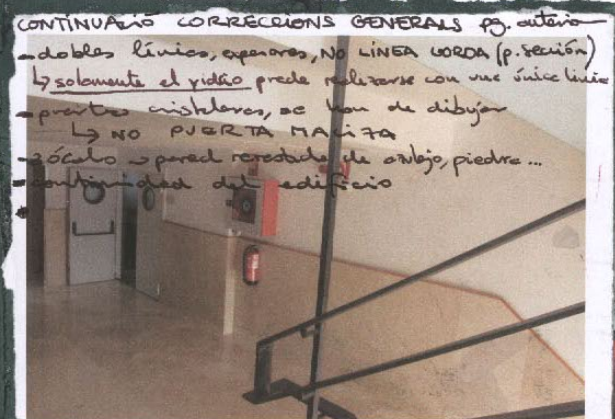 CONTINUACIÓ CORRECCIONS GENERALS pg. anterior
- dobles línies, espesores, NO LÍNEA GORDA (p. sección)
↳ solamente el vidrio puede realizarse con una única línia
- puertas cristaleras, se han de dibujar
↳ NO PUERTA MACIZA
- zócalo → pared recostada de azulejo, piedra...
- continuidad del edificio